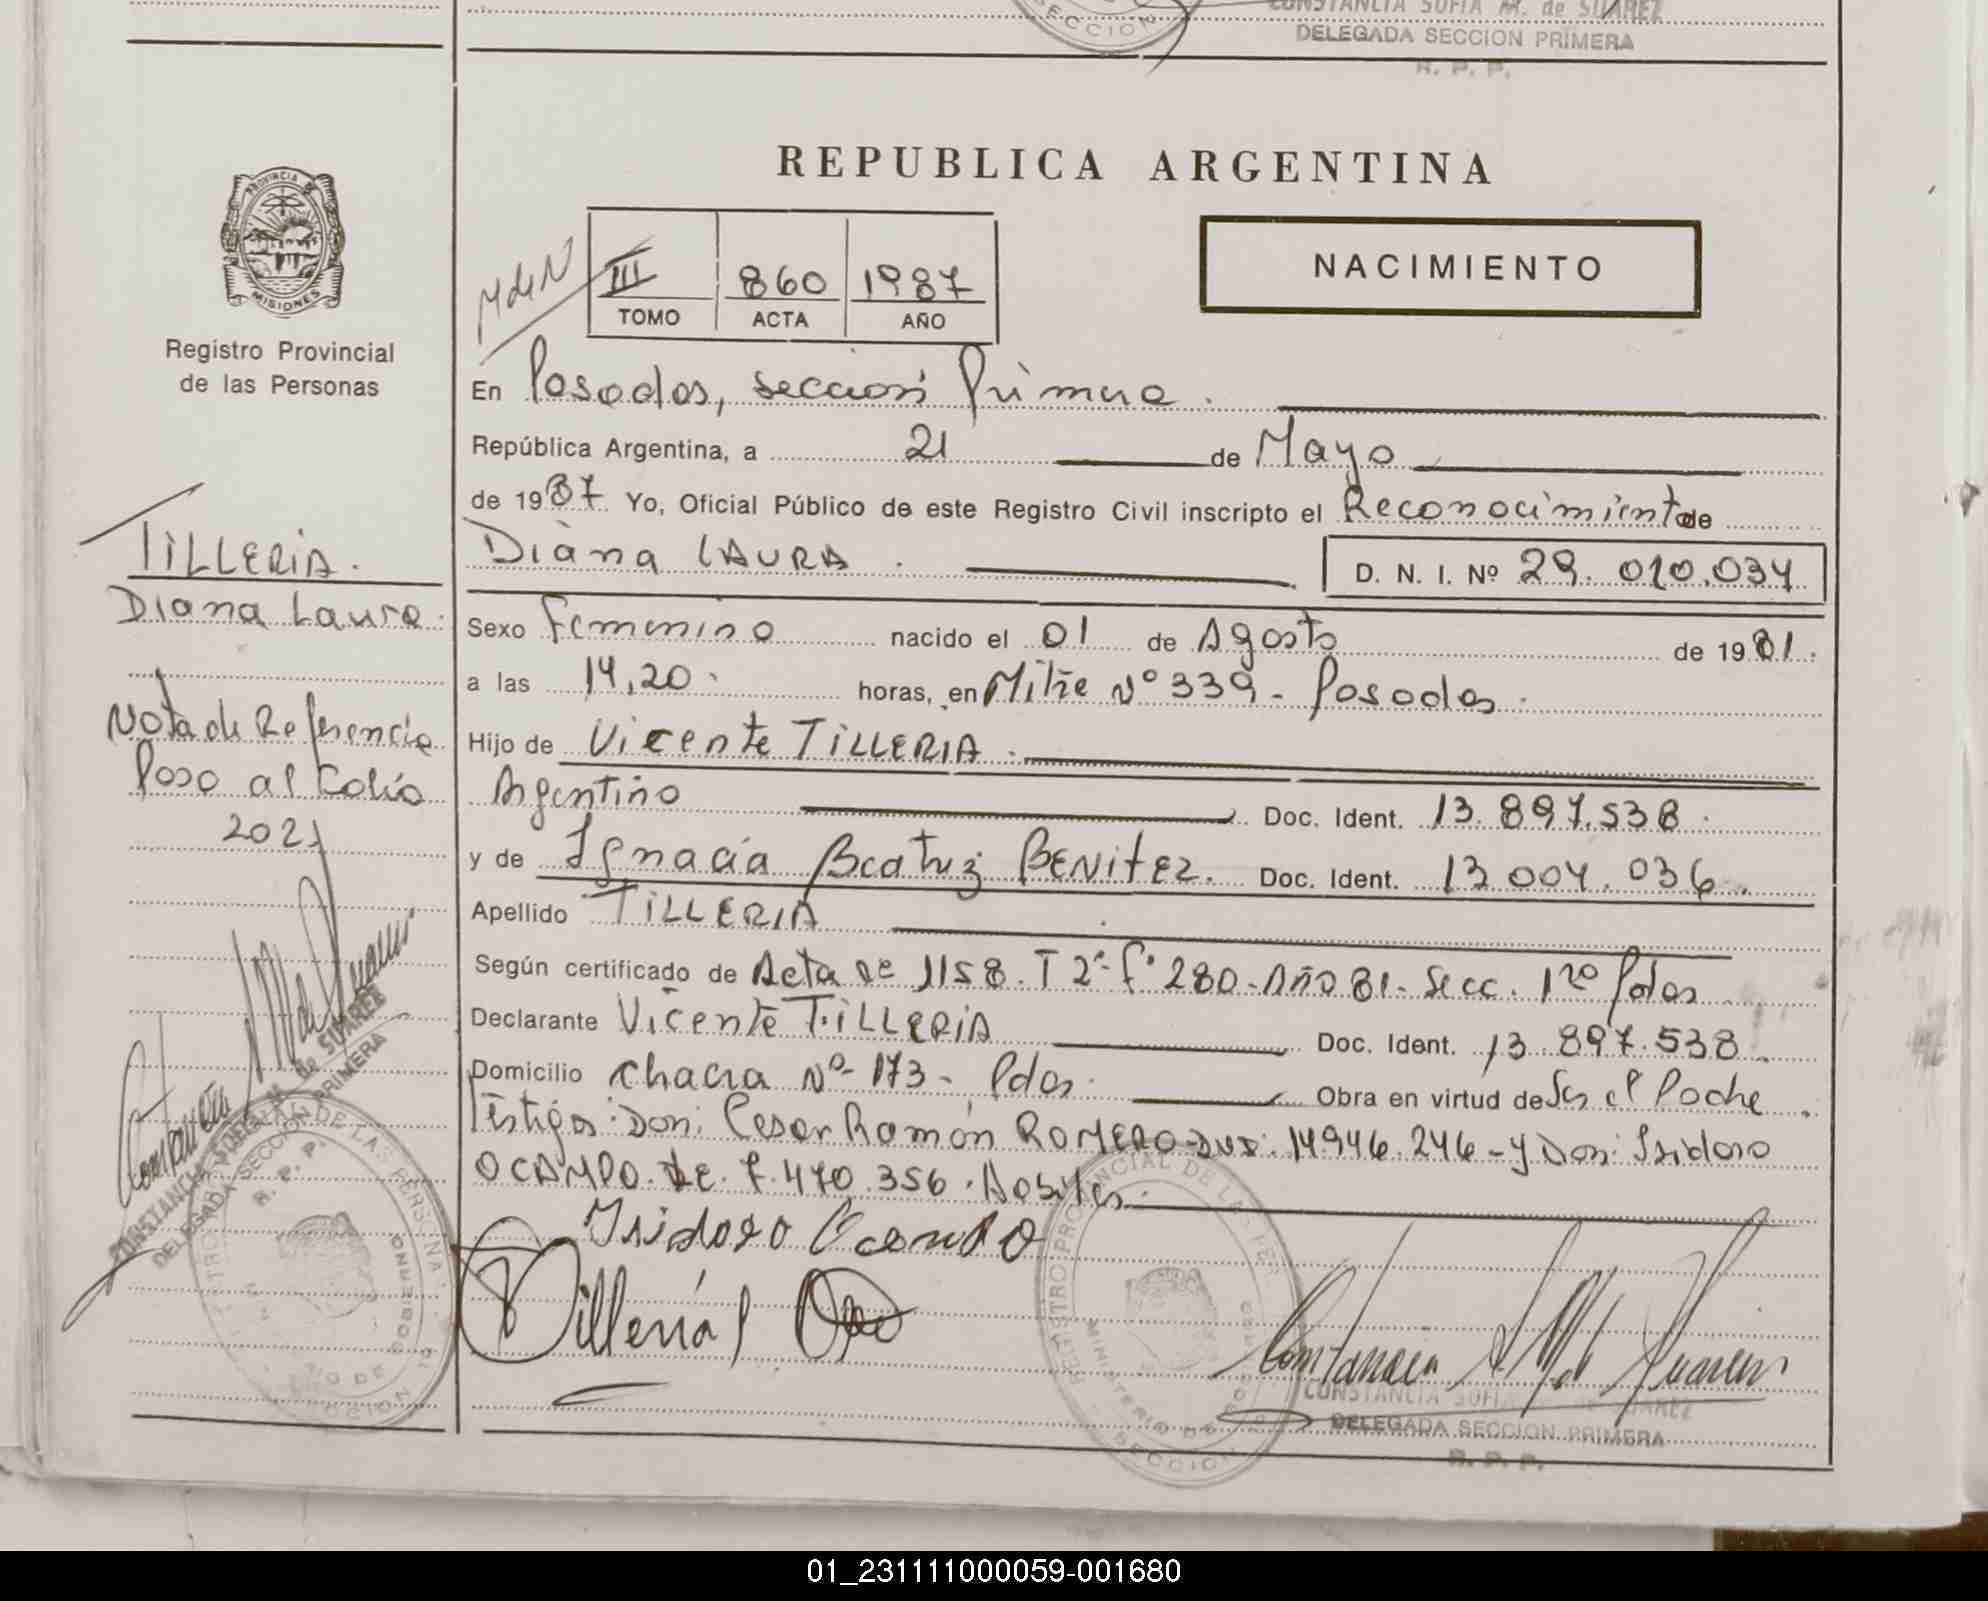 CONSTANCIA SOFIA M. de SUAREZ
DELEGADA SECCION PRIMERA
R. P. P.
SECCION
PROVINCIA DE
MISIONES
Registro Provincial
de las Personas
TILLERIA.
Diana Laura.
Nota de Referencia
Paso al Folio
2021
CONSTANCIA SOFIA M. de SUAREZ
DELEGADA SECCION PRIMERA
R. P. P.
REPUBLICA ARGENTINA
MdeN
III 860 1987
TOMO ACTA AÑO
NACIMIENTO
En Posadas, sección Primera.
República Argentina, a 21 de Mayo
de 1987 Yo, Oficial Público de este Registro Civil inscripto el Reconocimiento de
Diana LAURA. D. N. I. Nº 29.010.034
Sexo Femenino nacido el 01 de Agosto de 1981.
a las 14,20. horas, en Mitre Nº 339 - Posadas.
Hijo de Vicente TILLERIA.
Argentino Doc. Ident. 13.897.538.
y de Ignacia Beatriz BENITEZ. Doc. Ident. 13.004.036.
Apellido TILLERIA
Según certificado de Acta de 1158. T 2º- Fº 280- Año 81- Secc. 1ra Pdas
Declarante Vicente TILLERIA Doc. Ident. 13.897.538.
Domicilio Chacra Nº- 173- Pdas. Obra en virtud de Ser el Padre.
Testigos: Don: Cesar Ramón ROMERO- DNI: 14.946.246 - y Don: Isidoro
OCAMPO. LE. 7.470.356. Habiles.
Isidoro Ocampo
Tilleria
Constancia S M de Suarez
CONSTANCIA SOFIA M. de SUAREZ
DELEGADA SECCION PRIMERA
R. P. P.
01_231111000059-001680